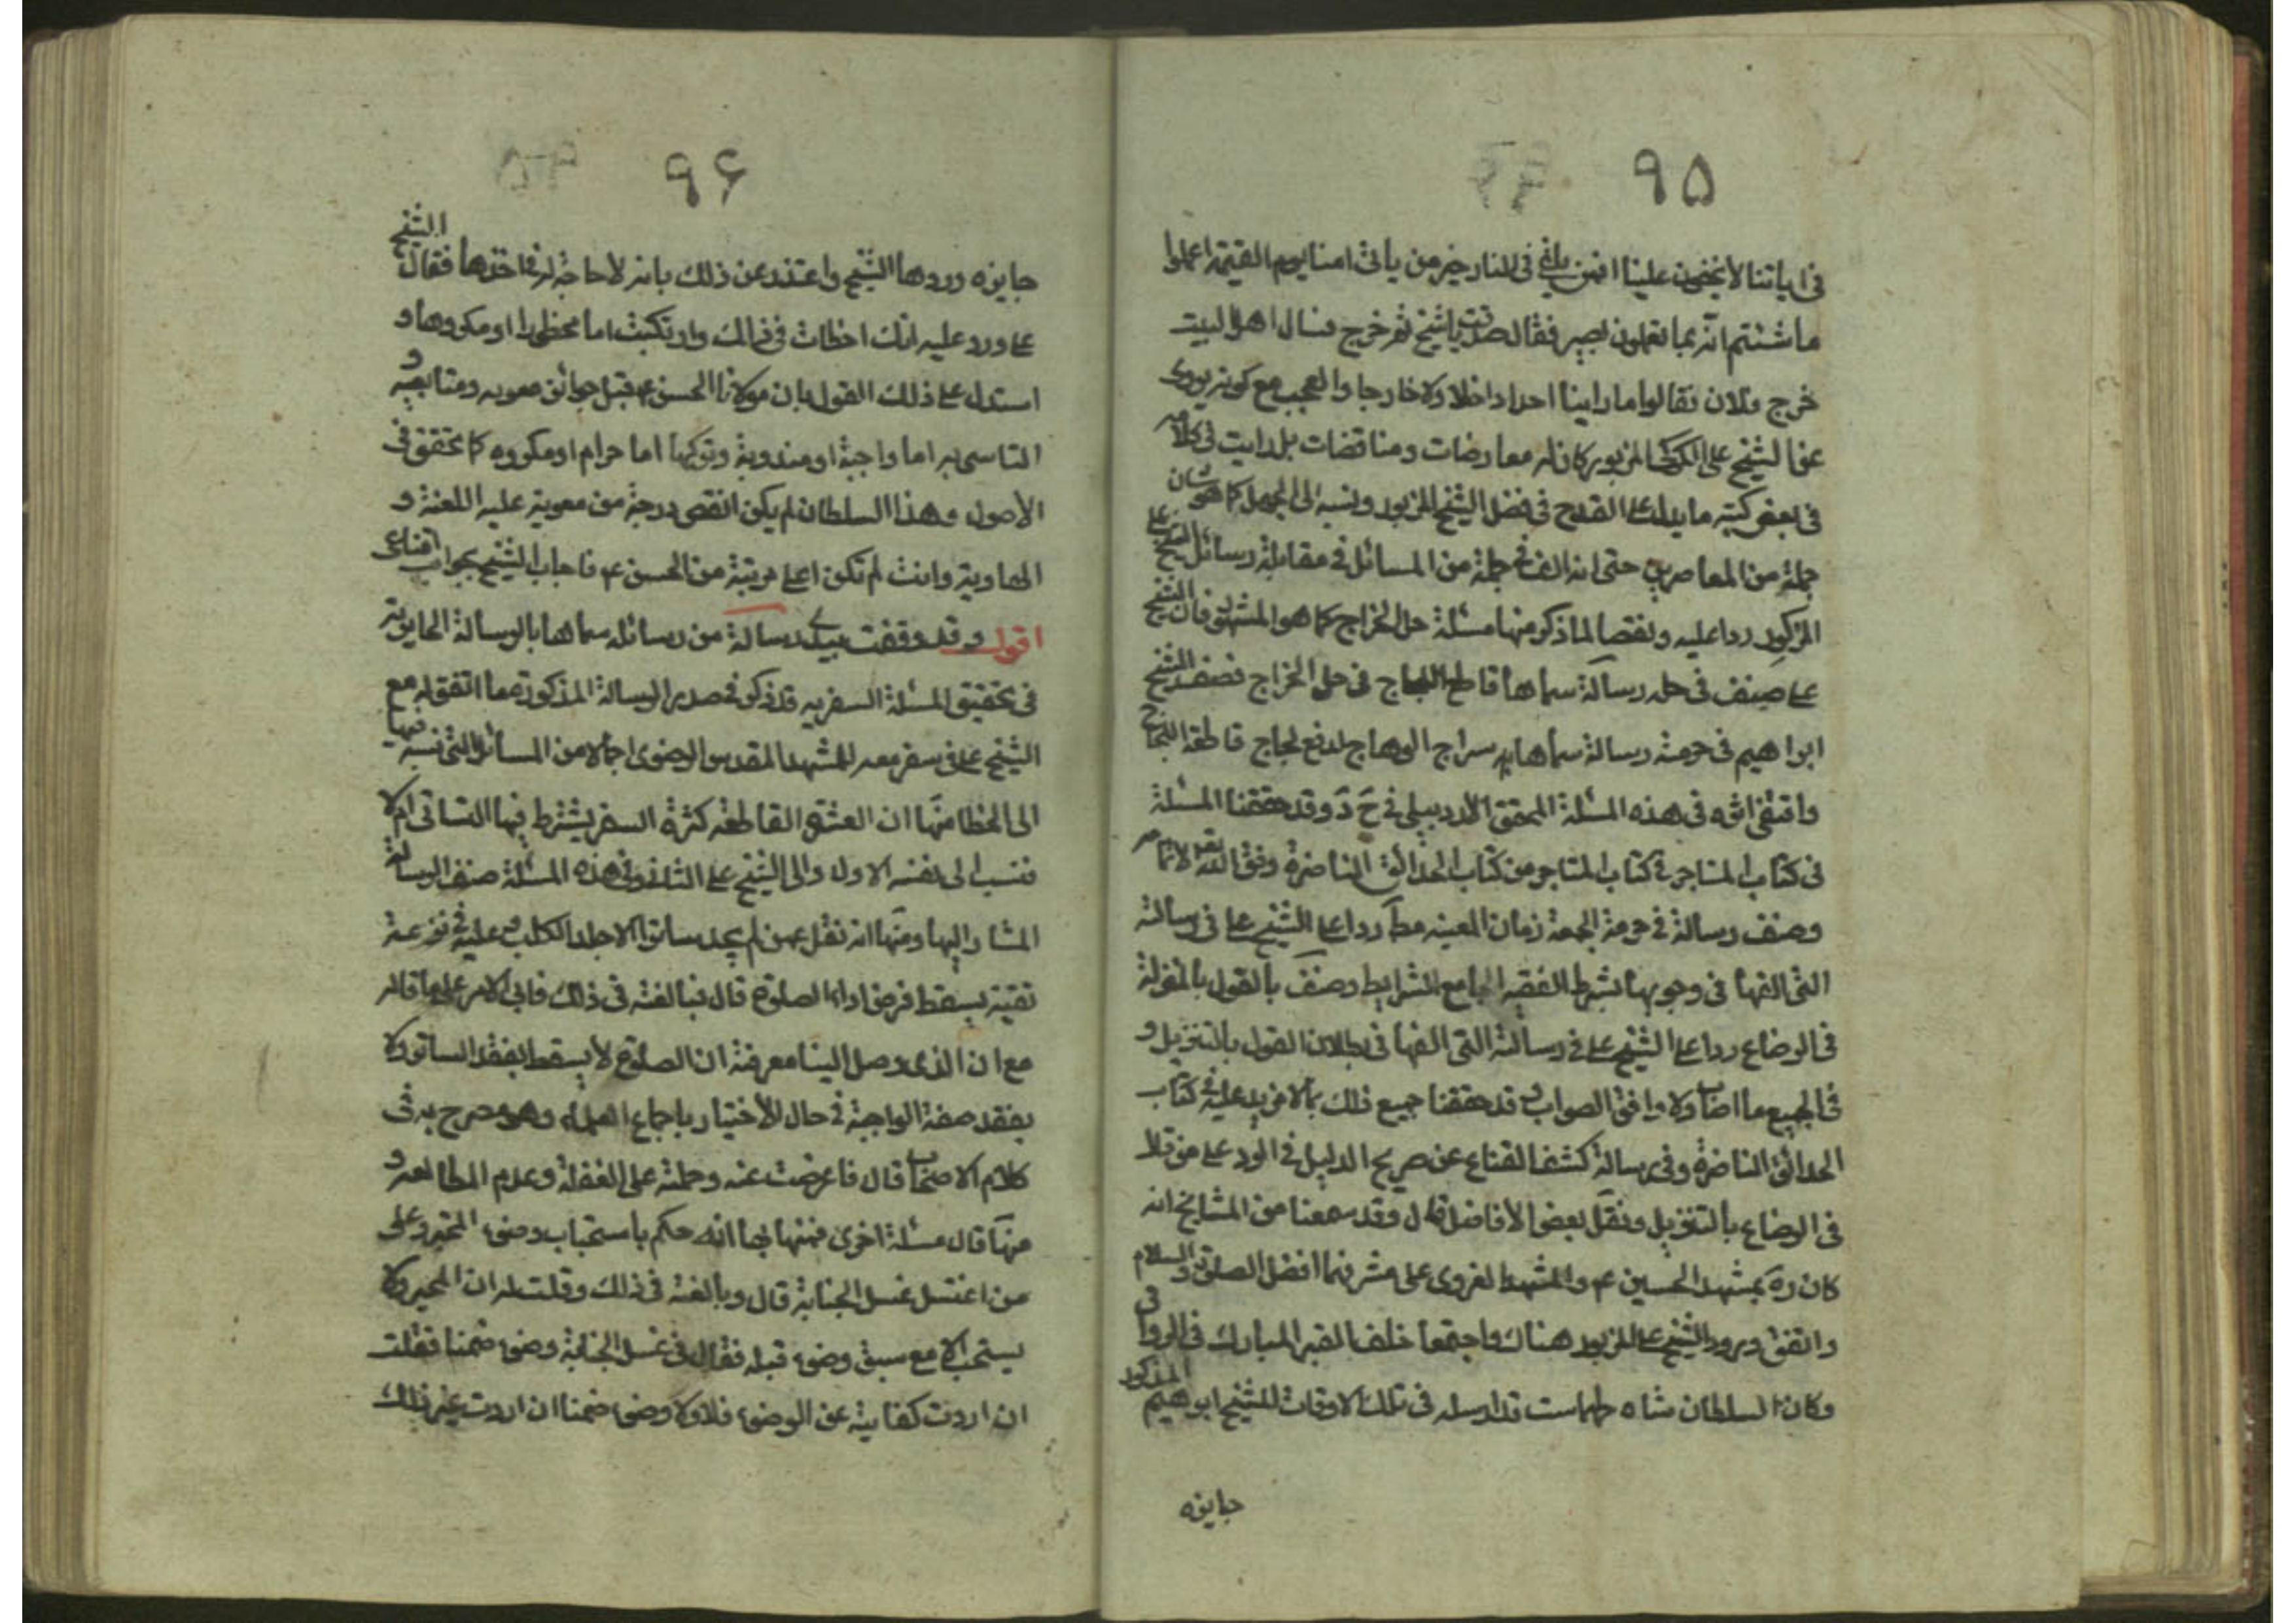 ۹۵
فى اياتنا لا يخفون علينا افمن يلقى فى النار خير من ياتى امنا يوم القيمة اعملوا
ما شئتم انه بما تعملون بصير فقال صدقت يا شيخ ثم خرج فسال اهل البيت
خرج فلان فقالوا ما راينا احدا داخلا ولا خارجا والعجب مع كونه يروى
عن الشيخ على الكركى المزبور كان له معارضات ومناقضات بل رايت فى كلامه
فى بعض كتبه ما يدل على القدح فى فضل الشيخ المزبور ونسبه الى الجهل كما هو شان
جملة من المعاصرين حتى انه الف فى جملة من المسائل فى مقابلة رسائل الشيخ على
المزكور ردا عليه ونقضا لما ذكر منها مسئلة حل الخراج كما هو المشهور فان الشيخ
على صنف فى حله رسالة سماها قاطع اللجاج فى حل الخراج فصنف الشيخ
ابراهيم فى حرمته رسالة سماها سراج الوهاج لدفع لجاج قاطعة اللجاج
واقتفى اثره فى هذه المسئلة المحقق الاردبيلى ره وقد حققنا المسئلة
فى كتاب المتاجر فى كتاب المتاجر من كتاب الحدائق الناضرة وفق الله تعالى لاتمامه
وصنف رسالة فى حرمة الجمعة زمان الغيبة مطلقا ردا على الشيخ على فى رسالة
التى الفها فى وجوبها بشرط الفقيه الجامع الشرايط وصنف بالقول بالمنزلة
فى الرضاع ردا على الشيخ على فى رسالته التى الفها فى بطلان القول بالتنزيل و
فى الجميع ما اصاب ولا وافق الصواب وقد حققنا جميع ذلك بما لا مزيد عليه فى كتاب
الحدائق الناضرة وفى رسالة كشف القناع عن صريح الدليل فى الرد على من قال
فى الرضاع بالتنزيل ونقل بعض الافاضل قال وقد سمعنا من المشايخ انه
كان ره بمشهد الحسين ع م والمشهد الغروى على مشرفهما افضل الصلوة والسلام
واتفق ورود الشيخ على المزبور هناك واجتمعا خلف القبر المبارك فى الرواق
وكان السلطان شاه طهماست قد ارسله فى تلك الاوقات للشيخ ابرهيم المذكور
جايزه
۹۶
جايزه وردها الشيخ واعتذر عن ذلك بانه لا حاجة له فى اخذها فقال الشيخ
على ورد عليه انك اخطات فى ذلك وارتكبت اما محظورا او مكروها و
استدل على ذلك القول بان مولانا الحسن ع م قبل جوائز معويه ومتابعته و
التاسى به اما واجبة او مندوبة وتركها اما حرام او مكروه كما تحقق فى
الاصول وهذا السلطان لم يكن انقص درجة من معوية عليه اللعنة و
الهاوية وانت لم تكن اعلى مرتبة من الحسن ع م فاجاب الشيخ بجواب اقناعى
اقول وقد وقفت على رسالة من رسائله سماها بالرسالة الحايرية
فى تحقيق المسئلة السفريه قد ذكر فى صدر الرسالة المذكورة ما اتفق له مع
الشيخ على فى سفر معه للمشهد المقدس الرضوى اجمالا من المسائل التى نسبه فيها
الى الخطا منها ان العشرة القاطعة كثرة السفر يشترط فيها التتالى ام لا
فنسب الى نفسه الاول والى الشيخ على الثانى وفى هذه المسئلة صنف الرسالة
المشار اليها ومنها انه نقل عمن لم يجد ساترا الا جلد الكلب وعليه فى نزعه
تقية يسقط فرض اداء الصلوة قال فبالغته فى ذلك فابى الامر على ما قاله
مع ان الذى وصل الينا معرفته ان الصلوة لا يسقط بفقد الساتر ولا
بفقد صفته الواجبة فى حال الاختيار باجماع العلماء وهو مصرح به فى
كلام الاصحاب قال فاعرضت عنه وحملته على الغفلة وعدم المطالعة و
منها قال مسئلة اخرى فمنها بها انه حكم باستحباب وضوء المجير على
من اغتسل غسل الجنابة قال وبالغته فى ذلك وقلت له ان المجير لا
يستحب الا مع سبق وضوء قبله فقال فى غسل الجنابة وضوء ضمنا فقلت
ان اردت كفايته عن الوضوء فلا ولا وضوء ضمنا ان اردت غير ذلك